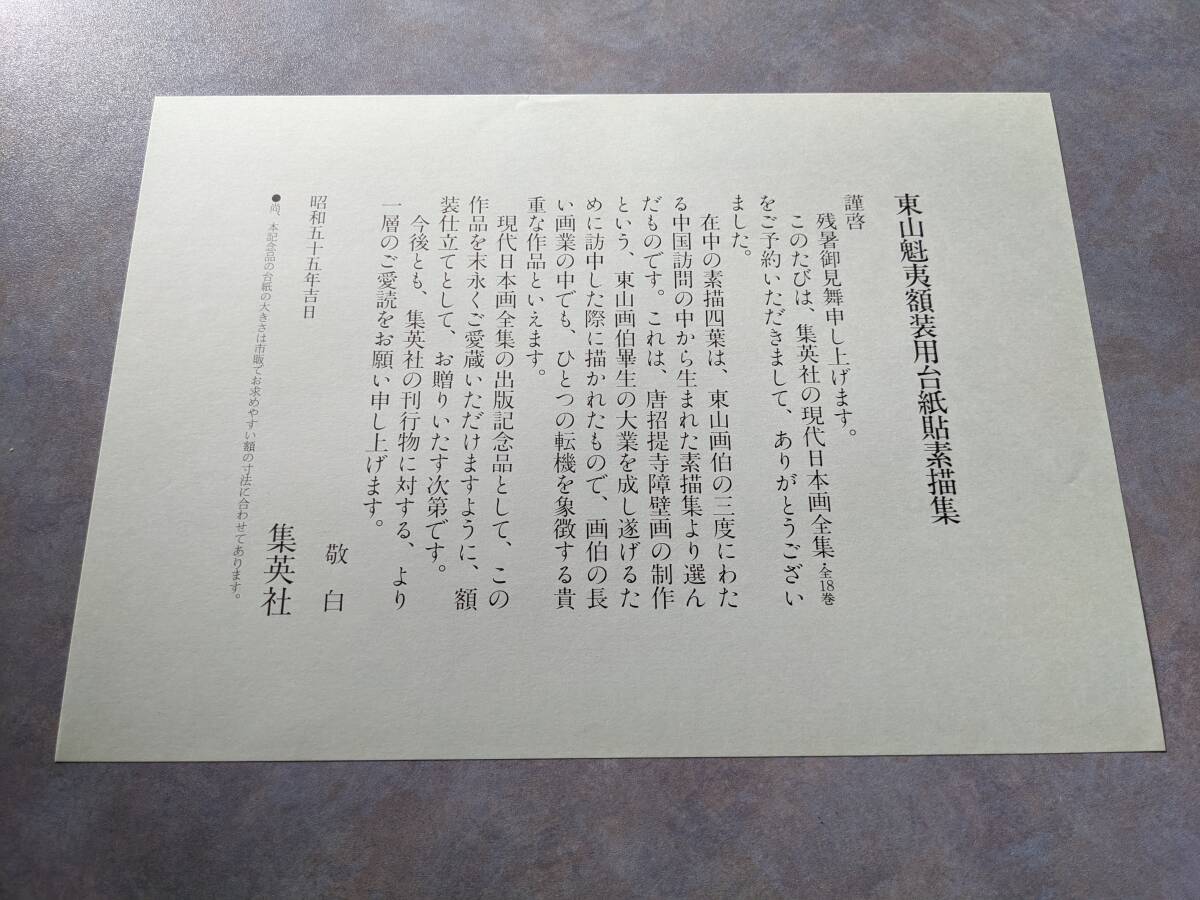 東山魁夷額装用台紙貼素描集
謹啓
残暑御見舞申し上げます。
このたびは、集英社の現代日本画全集・全18巻
をご予約いただきまして、ありがとうござい
ました。
在中の素描四葉は、東山画伯の三度にわた
る中国訪問の中から生まれた素描集より選ん
だものです。これは、唐招提寺障壁画の制作
という、東山画伯畢生の大業を成し遂げるた
めに訪中した際に描かれたもので、画伯の長
い画業の中でも、ひとつの転機を象徴する貴
重な作品といえます。
現代日本画全集の出版記念品として、この
作品を末永くご愛蔵いただけますように、額
装仕立てとして、お贈りいたす次第です。
今後とも、集英社の刊行物に対する、より
一層のご愛読をお願い申し上げます。
敬白
昭和五十五年吉日
集英社
●尚、本記念品の台紙の大きさは市販でお求めやすい額の寸法に合わせてあります。